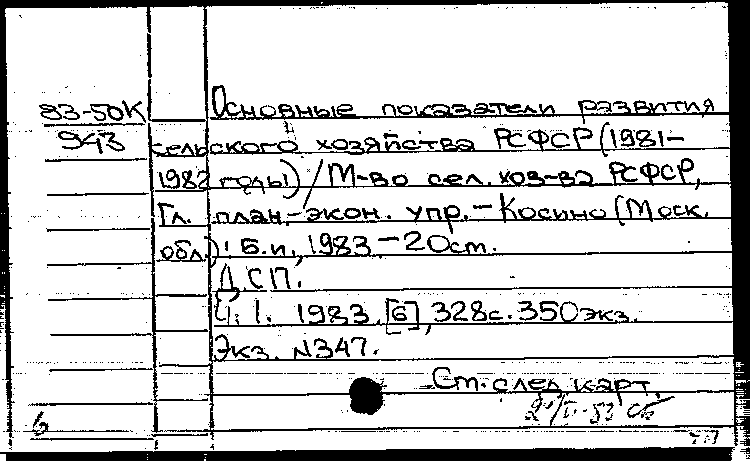 83-50К Основные показатели развития
943 сельского хозяйства РСФСР (1981-
1982 годы) / М-во сел. хоз-ва РСФСР,
Гл. план.-экон. упр. - Косино (Моск.
обл.): Б.и., 1983. - 20см.
Д.С.П.
Ч. 1. 1983. [6], 328с. 350экз.
Экз. N347.
См. след карт.
6